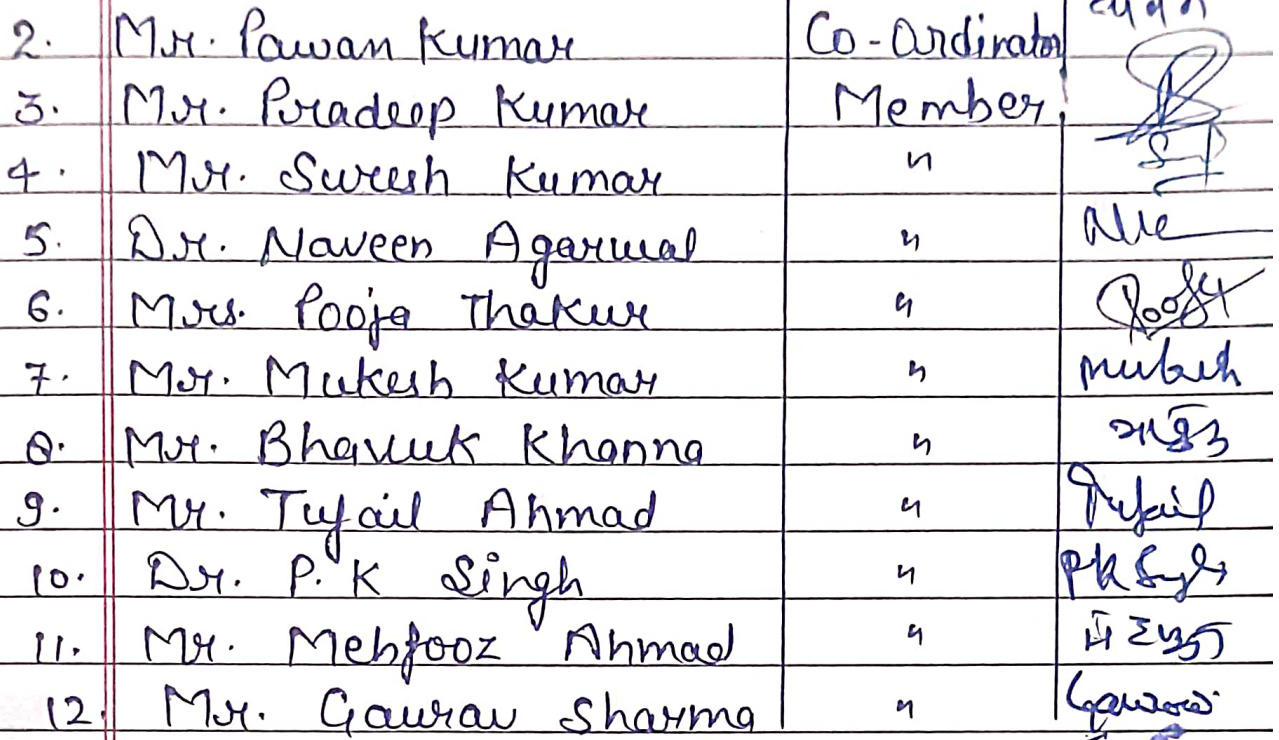 2. Mr. Pawan Kumar Co-Ordinator
3. Mr. Pradeep Kumar Member
4. Mr. Suresh Kumar "
5. Dr. Naveen Agarwal "
6. Mrs. Pooja Thakur " Pooja
7. Mr. Mukesh Kumar " Mukesh
8. Mr. Bhavuk Khanna "
9. Mr. Tufail Ahmad " Tufail
10. Dr. P.K Singh " PK Singh
11. Mr. Mehfooz Ahmad "
12. Mr. Gaurav Sharma " Gaurav